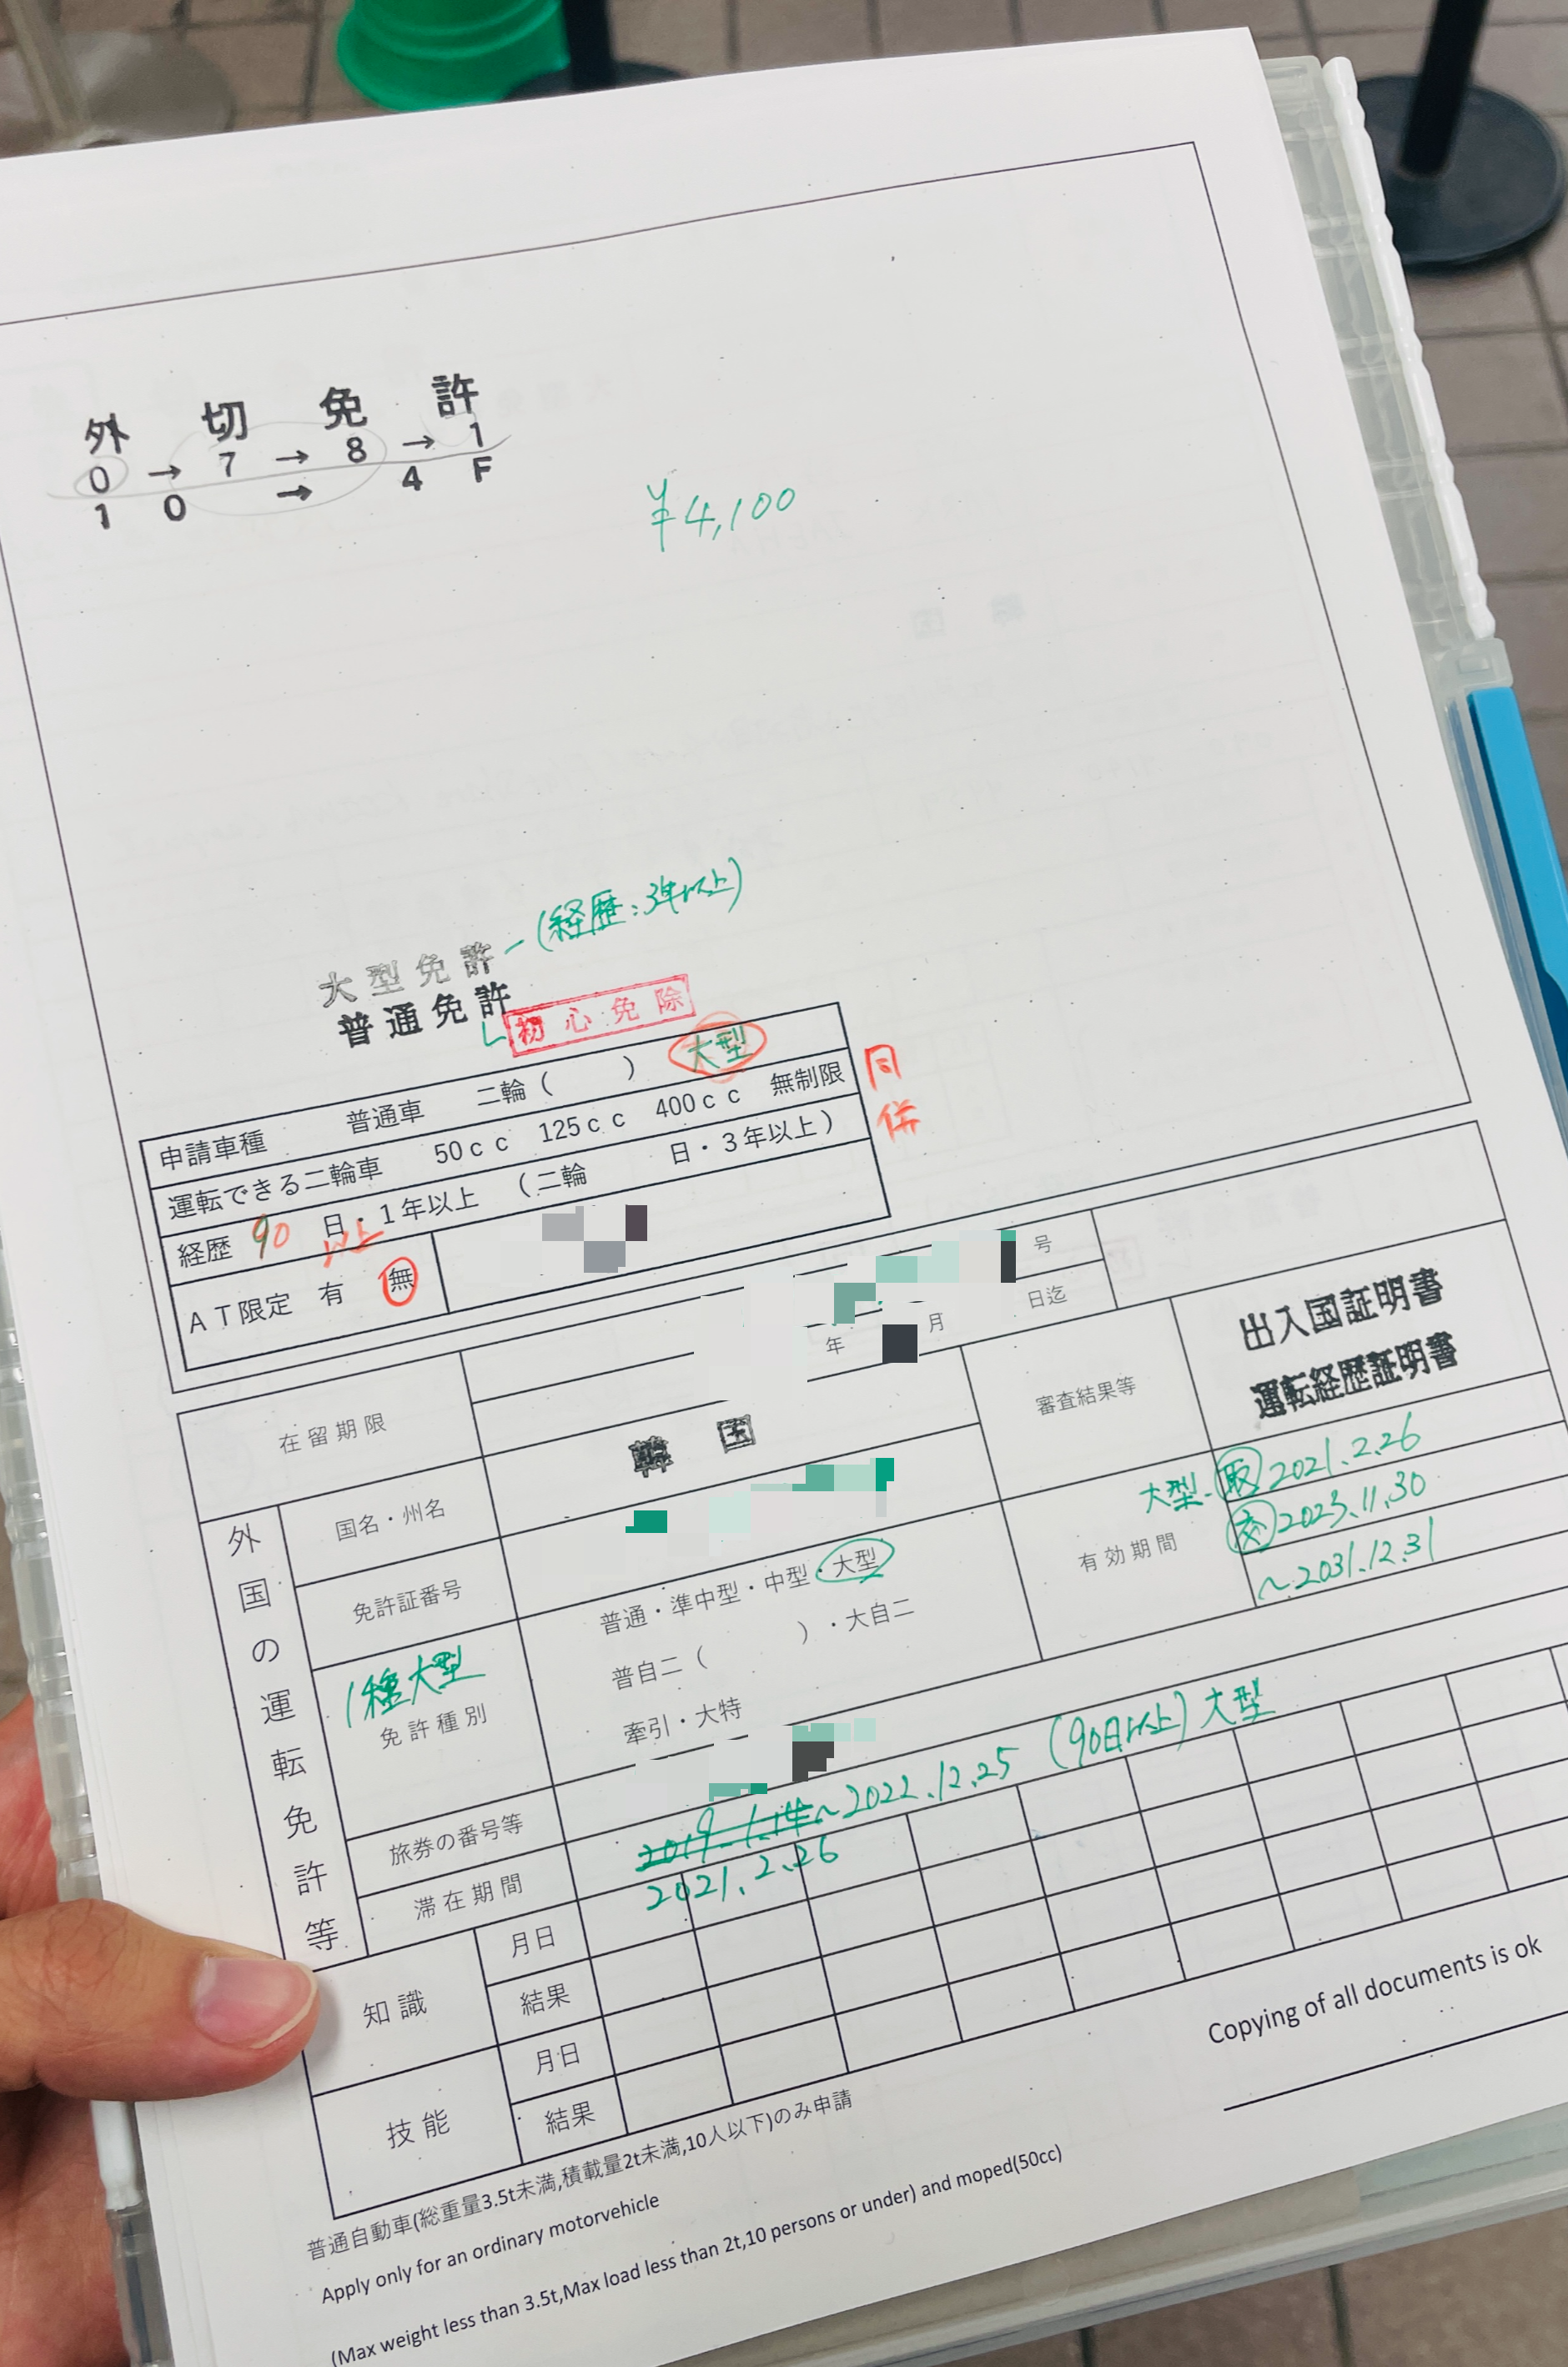 外切免許
0→7→8→1
10→4F
¥4,100
大型免許-(経歴:3年以上)
普通免許
初心免除
申請車種 普通車 二輪( ) 大型
同
併
運転できる二輪車 50cc 125cc 400cc 無制限
経歴 90 日・1年以上 (二輪 日・3年以上)
以上
AT限定 有 無
号
在留期限 年 月 日迄
外国の運転免許等
国名・州名 韓国
審査結果等 出入国証明書
運転経歴証明書
免許証番号
有効期間 大型-取2021.2.26
交2023.11.30
~2031.12.31
1種大型
免許種別 普通・準中型・中型・大型
普自二( )・大自二
牽引・大特
旅券の番号等
滞在期間 ~2022.12.25 (90日以上)大型
2021.2.26
知識 月日
結果
技能 月日
結果
Copying of all documents is ok
普通自動車(総重量3.5t未満,積載量2t未満,10人以下)のみ申請
Apply only for an ordinary motorvehicle
(Max weight less than 3.5t,Max load less than 2t,10 persons or under) and moped(50cc)